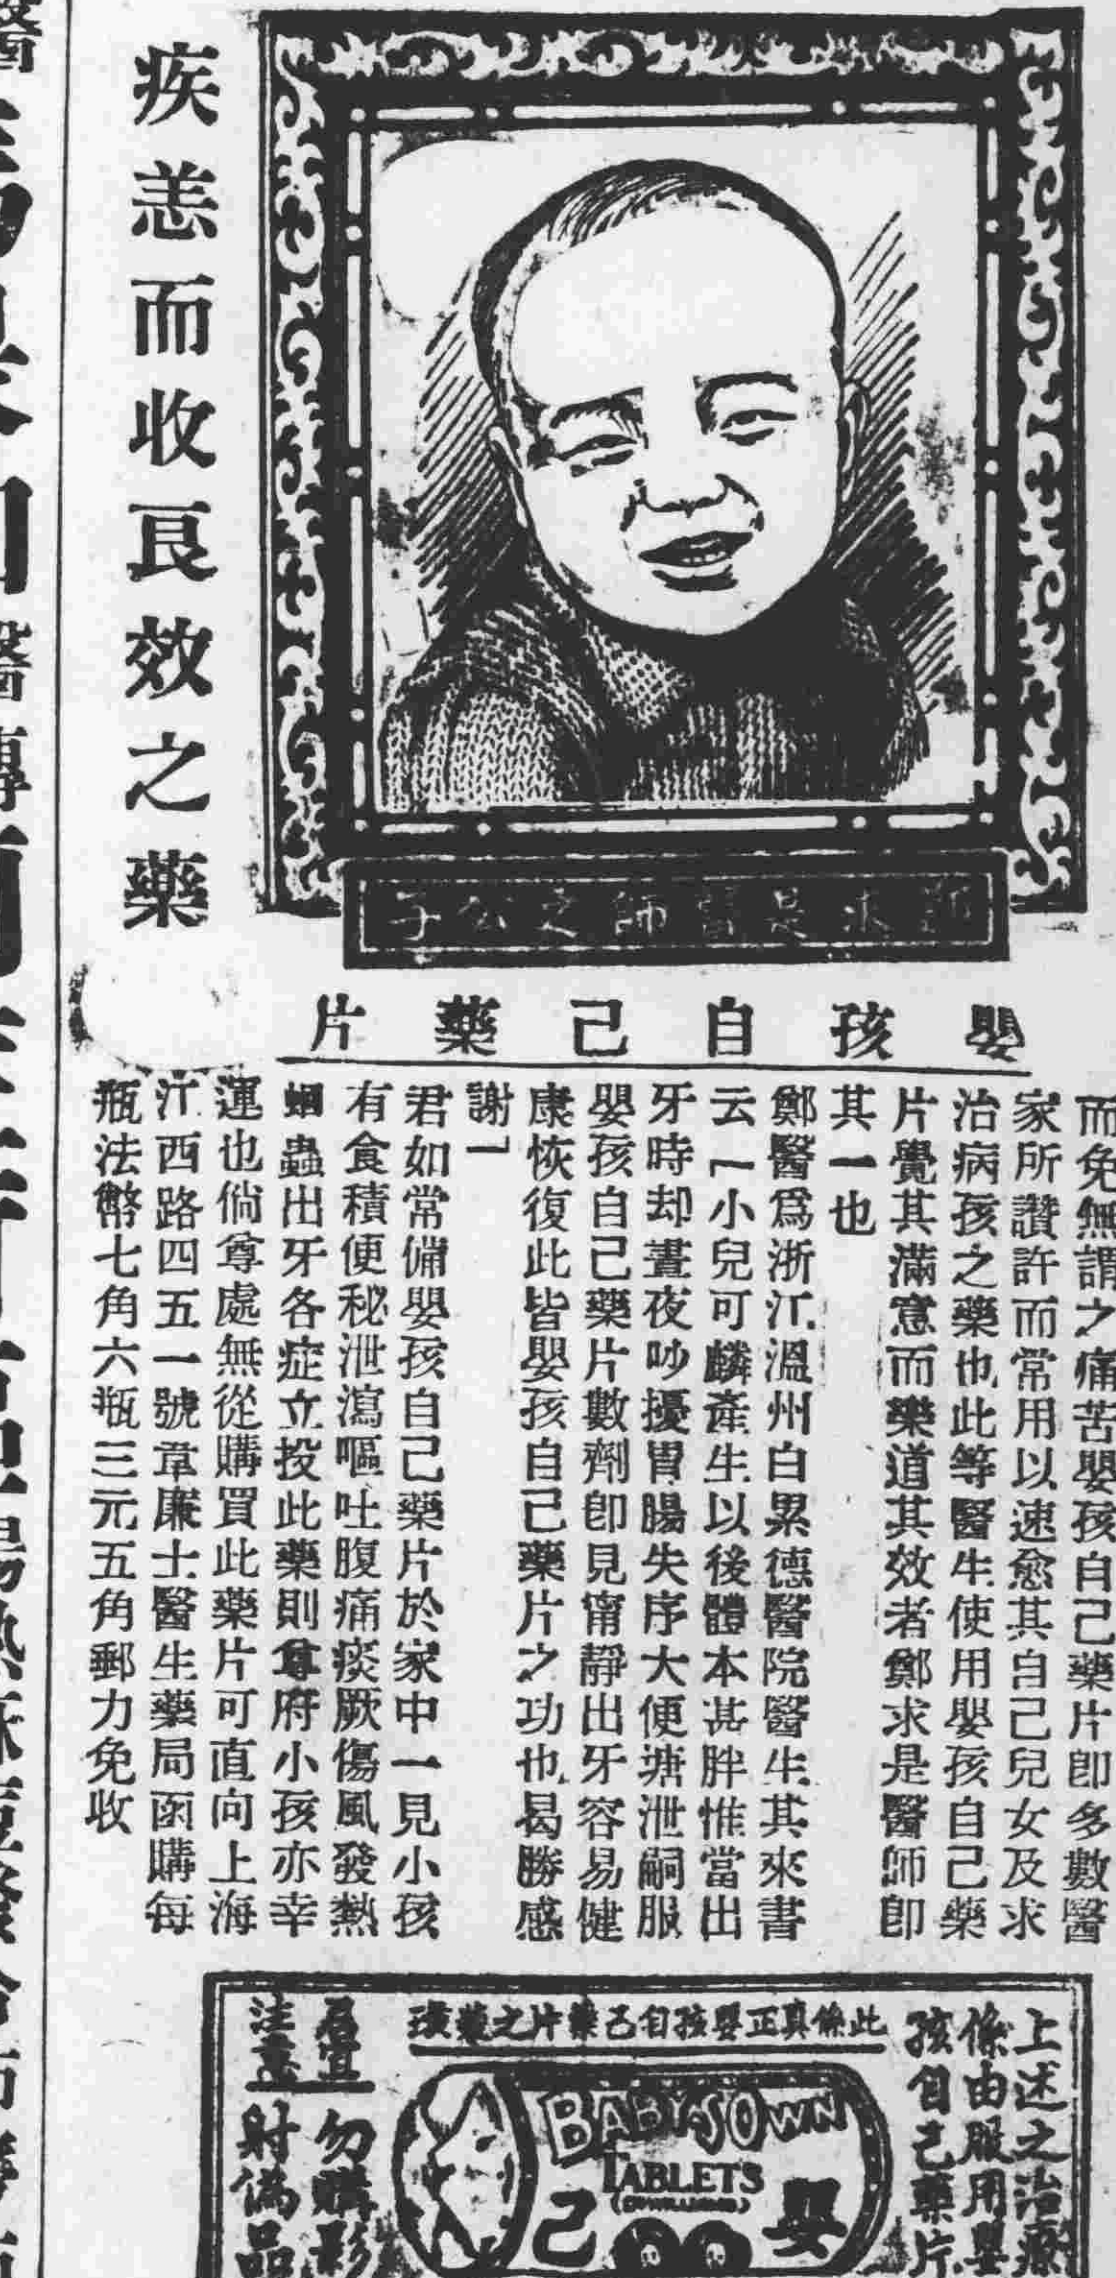 鄭求是醫師之公子
疾恙而收良效之藥
嬰孩自己藥片
而免無謂之痛苦嬰孩自己藥片卽多數醫
家所讚許而常用以速愈其自己兒女及求
治病孩之藥也此等醫生使用嬰孩自己藥
片覺其滿意而樂道其效者鄭求是醫師卽
其一也
鄭醫爲浙江溫州白累德醫院醫生其來書
云「小兒可麟產生以後體本甚胖惟當出
牙時却晝夜吵擾胃腸失序大便溏泄嗣服
嬰孩自己藥片數劑卽見甯靜出牙容易健
康恢復此皆嬰孩自己藥片之功也曷勝感
謝」
君如常備嬰孩自己藥片於家中一見小孩
有食積便秘泄瀉嘔吐腹痛痰厥傷風發熱
蛔蟲出牙各症立投此藥則尊府小孩亦幸
運也倘尊處無從購買此藥片可直向上海
江西路四五一號韋廉士醫生藥局函購每
瓶法幣七角六瓶三元五角郵力免收
上述之治療
係由服用嬰
孩自己藥片
此係真正嬰孩自己藥片之藥瓊
BABY'S OWN
TABLETS
嬰
己
君宜
注意
勿購影
射僞品